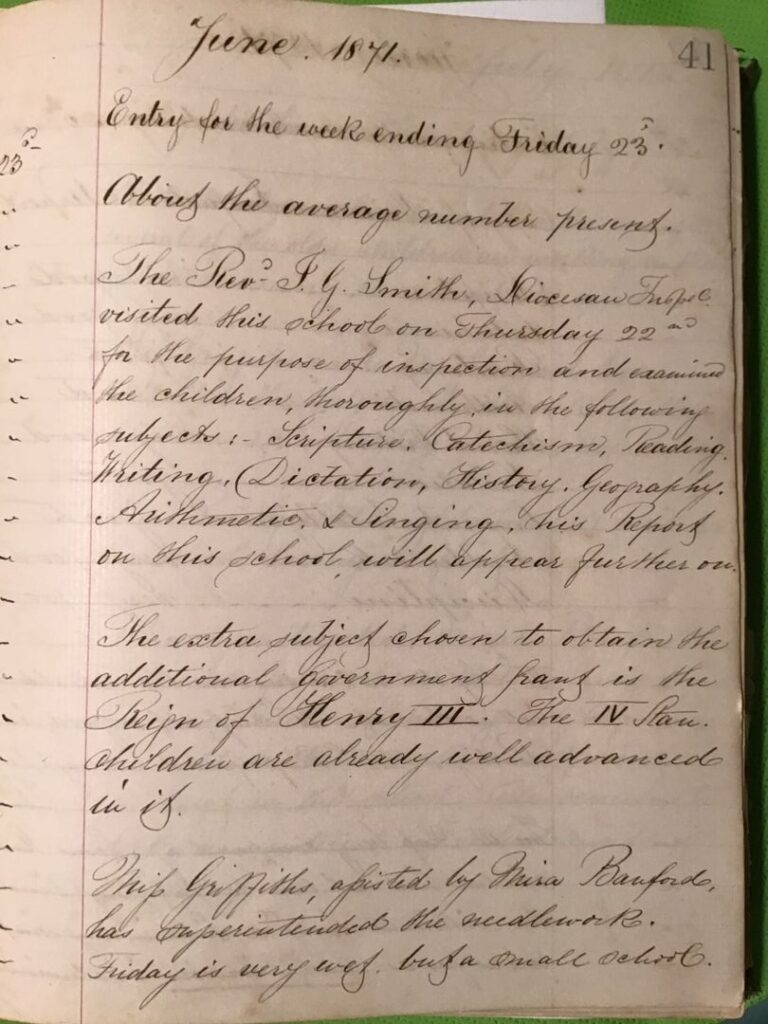 June. 1871.
41
Entry for the week ending Friday 23rd.
About the average number present.
The Revd. F. G. Smith, Diocesan Inspec.
visited this school on Thursday 22nd
for the purpose of inspection and examined
the children, thoroughly, in the following
subjects:- Scripture. Catechism, Reading.
Writing, Dictation, History. Geography.
Arithmetic. & Singing, his Report
on this school will appear further on.
The extra subject chosen to obtain the
additional government grant is the
Reign of Henry III. The IV Stan.
children are already well advanced
in it.
Miss Griffiths, assisted by Mira Banford,
has superintended the needlework.
Friday is very wet. but a small school.
23